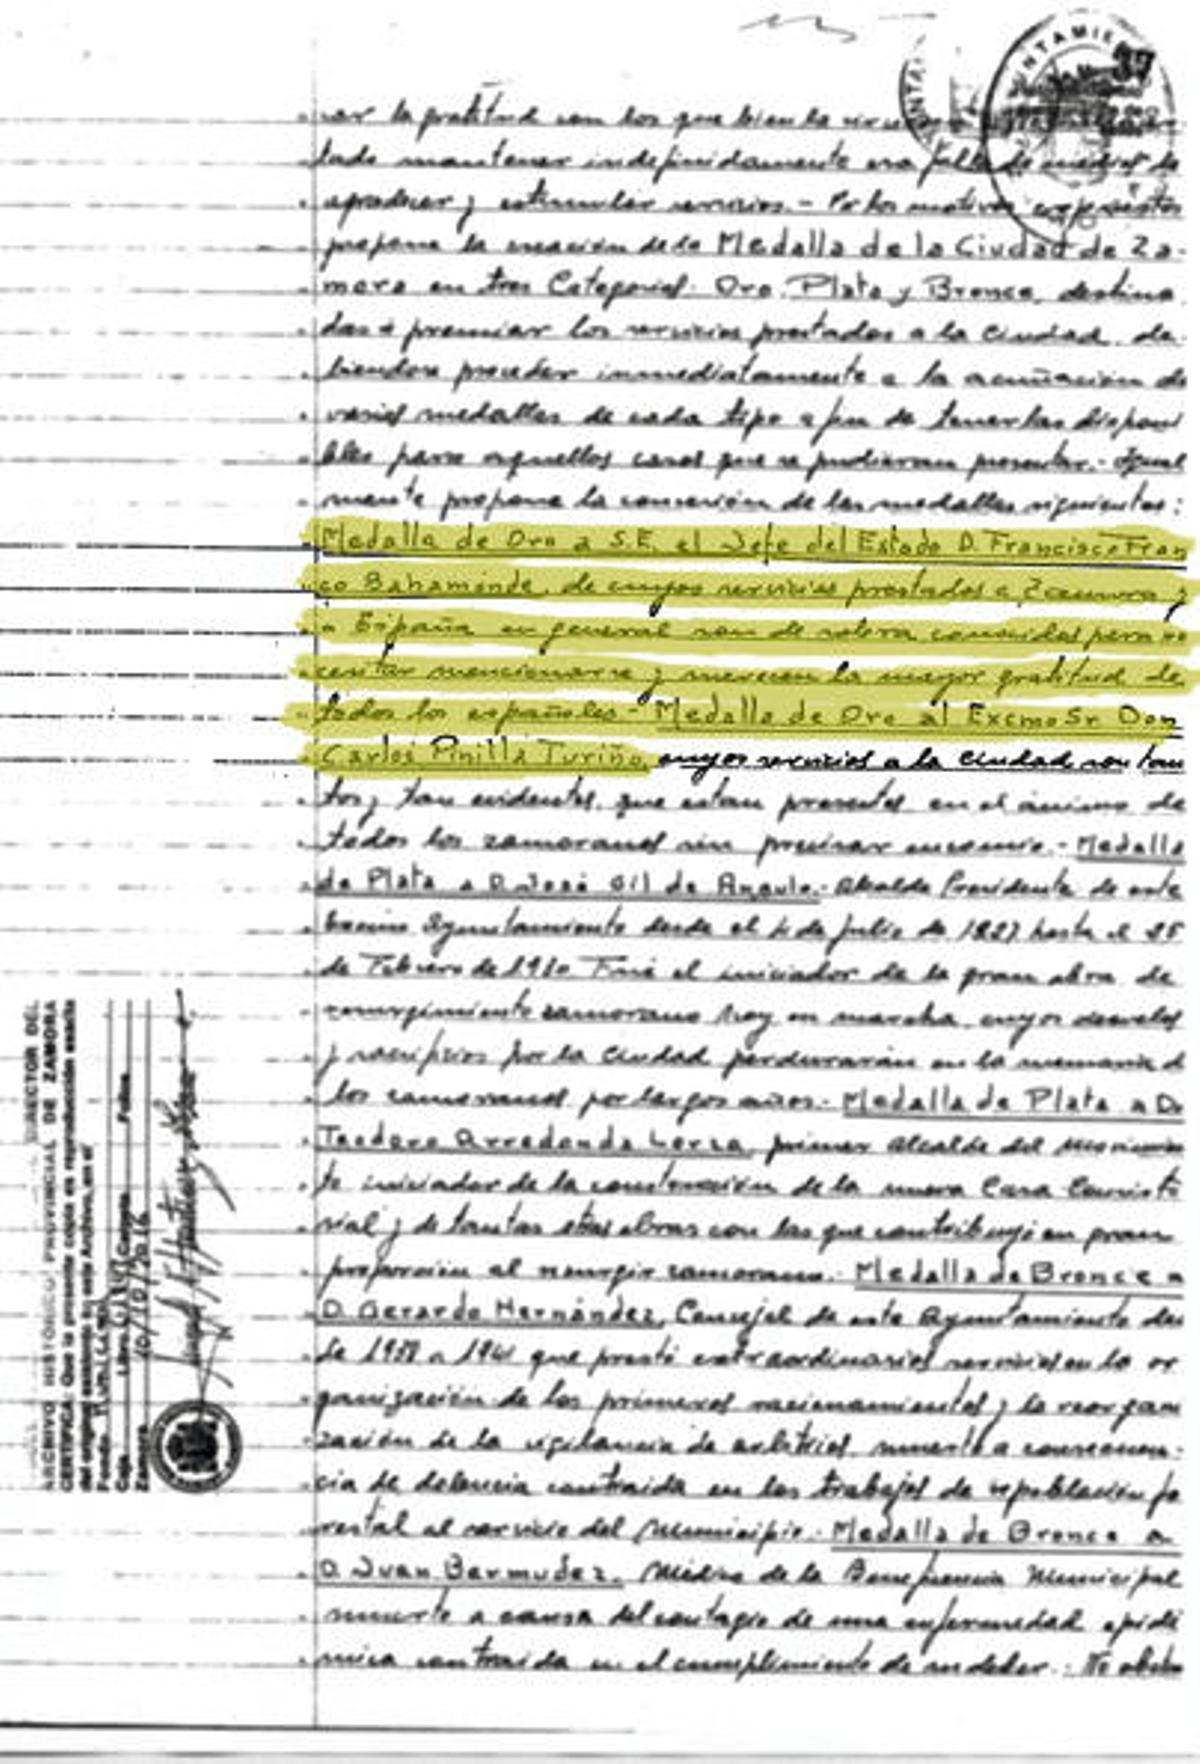 AYUNTAMIE
37
car la gratitud con los que bien le
tado mantener indefinidamente esa falta de medios de
agradecer y estimular servicios.- Por los motivos expuestos
propone la creación de la Medalla de la Ciudad de Za-
mora en tres Categorias. Oro, Plata y Bronce, destina
das a premiar los servicios prestados a la Ciudad, de-
biendose proceder inmediatamente a la acuñación de
varias medallas de cada tipo a fin de tenerlas disponi
bles para aquellos casos que se pudieran presentar.- Igual
mente propone la concesión de las medallas siguientes:
Medalla de Oro a S.E. el Jefe del Estado D. Francisco Fran
co Bahamonde, de cuyos servicios prestados a Zamora y
a España en general son de sobra conocidos para ne
cesitar mencionarse y merecen la mayor gratitud de
todos los españoles.- Medalla de Oro al Excmo Sr. Don
Carlos Pinilla Turiño, cuyos servicios a la Ciudad son tan
tos y tan evidentes, que estan presentes en el ánimo de
todos los zamoranos sin precisar encomio.- Medalla
de Plata a D. José Gil de Angulo.- Alcalde Presidente de este
Excmo Ayuntamiento desde el 4 de Julio de 1927 hasta el 25
de Febrero de 19 Fué el iniciador de la gran obra de
resurgimiento zamorano hoy en marcha, cuyos desvelos
y sacrificios por la Ciudad perdurarán en la memoria d
los zamoranos por largos años.- Medalla de Plata a D.
Teodoro Arredonda Lorza, primer Alcalde del Movimien
to iniciador de la construcción de la nueva Casa Consisto
rial y de tantas otras obras con las que contribuyó en gran
proporción al resurgir zamorano.- Medalla de Bronce a
D. Gerardo Hernández, Concejal de este Ayuntamiento des
de 19 a 1941 que prestó extraordinarios servicios en la or
ganización de los primeros racionamientos y la reorgani
zación de la vigilancia de arbitrios, muerto a consecuen-
cia de dolencia contraida en los trabajos de repoblación fo
restal al servicio del Municipio.- Medalla de Bronce a
D. Juan Bermudez, Médico de la Beneficencia Municipal
muerto a causa del contagio de una enfermedad epidé
mica contraida en el cumplimiento de su deber.- No obsta
DIRECTOR DEL
ARCHIVO HISTÓRICO PROVINCIAL DE ZAMORA
CERTIFICA: Que la presente copia es reproducción exacta
del original existente en este Archivo, en el
Fondo
Caja Libro Carpeta Folios
Zamora 10/10/2016